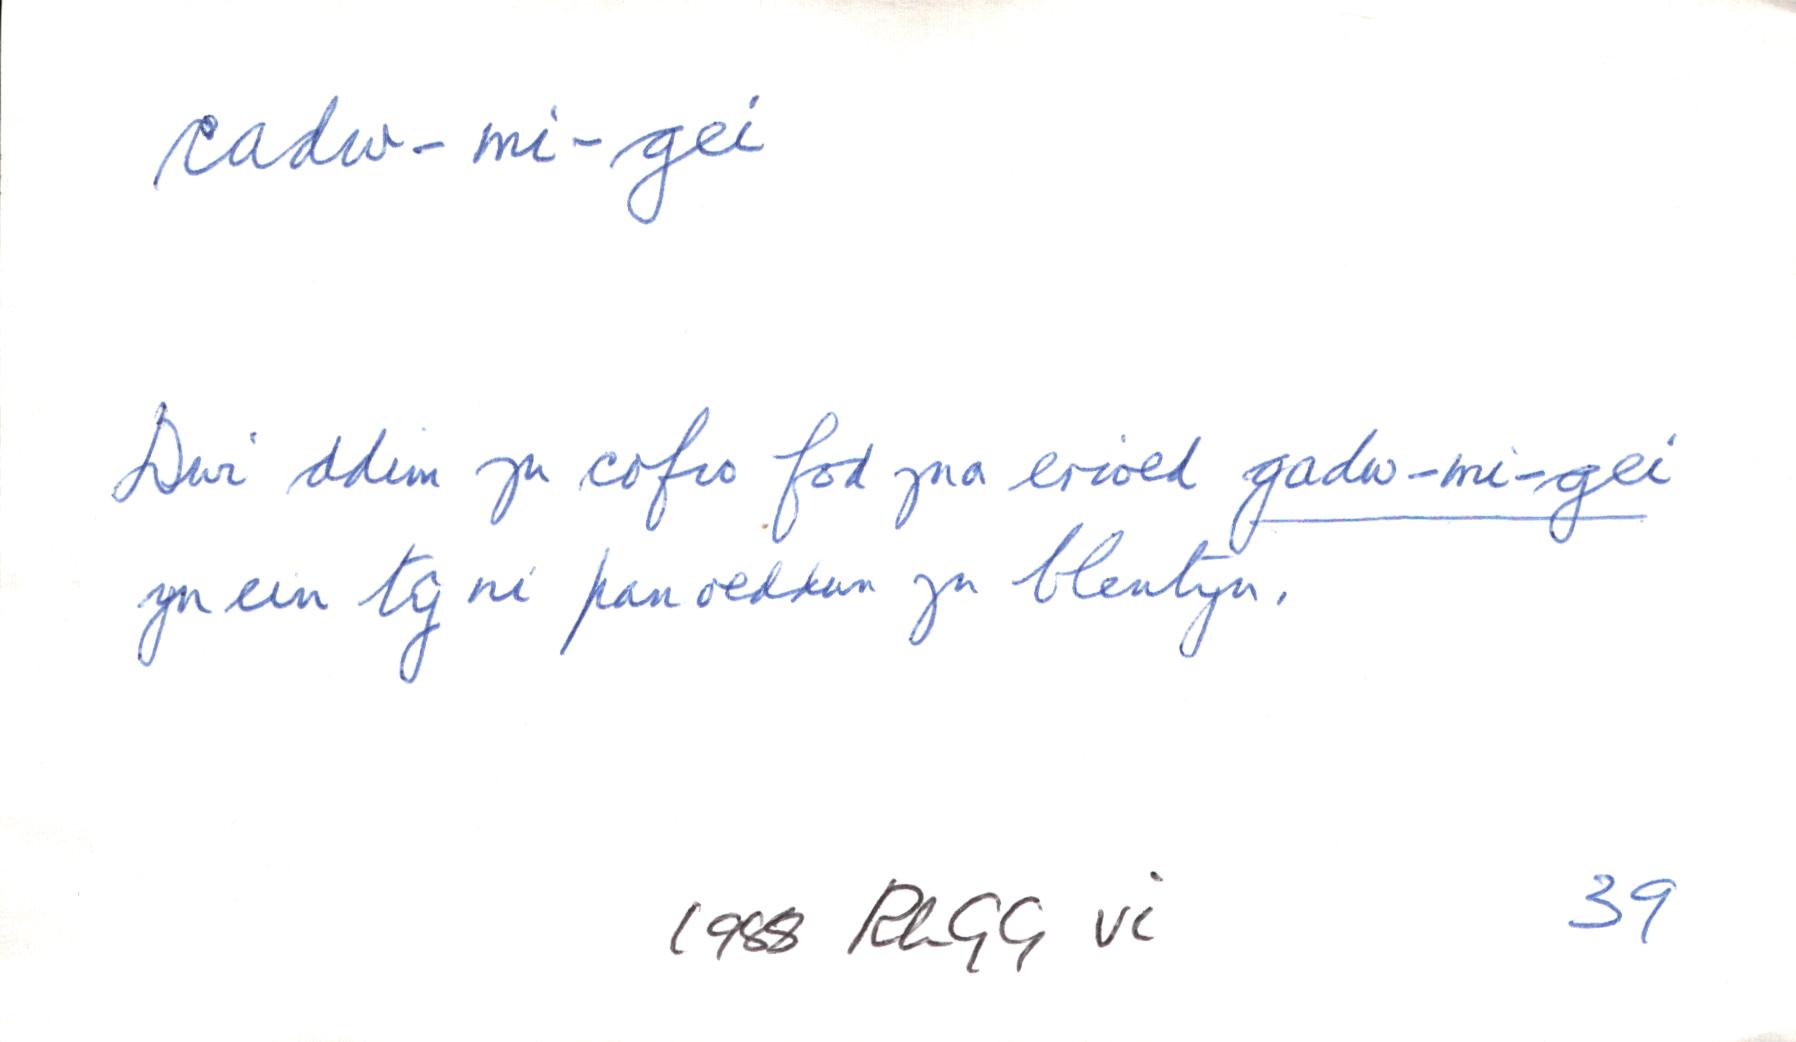 cadw-mi-gei
Dwi ddim yn cofio fod yna erioed gadw-mi-gei
yn ein tŷ ni pan oeddwn yn blentyn.
1988 RhGG vi 39